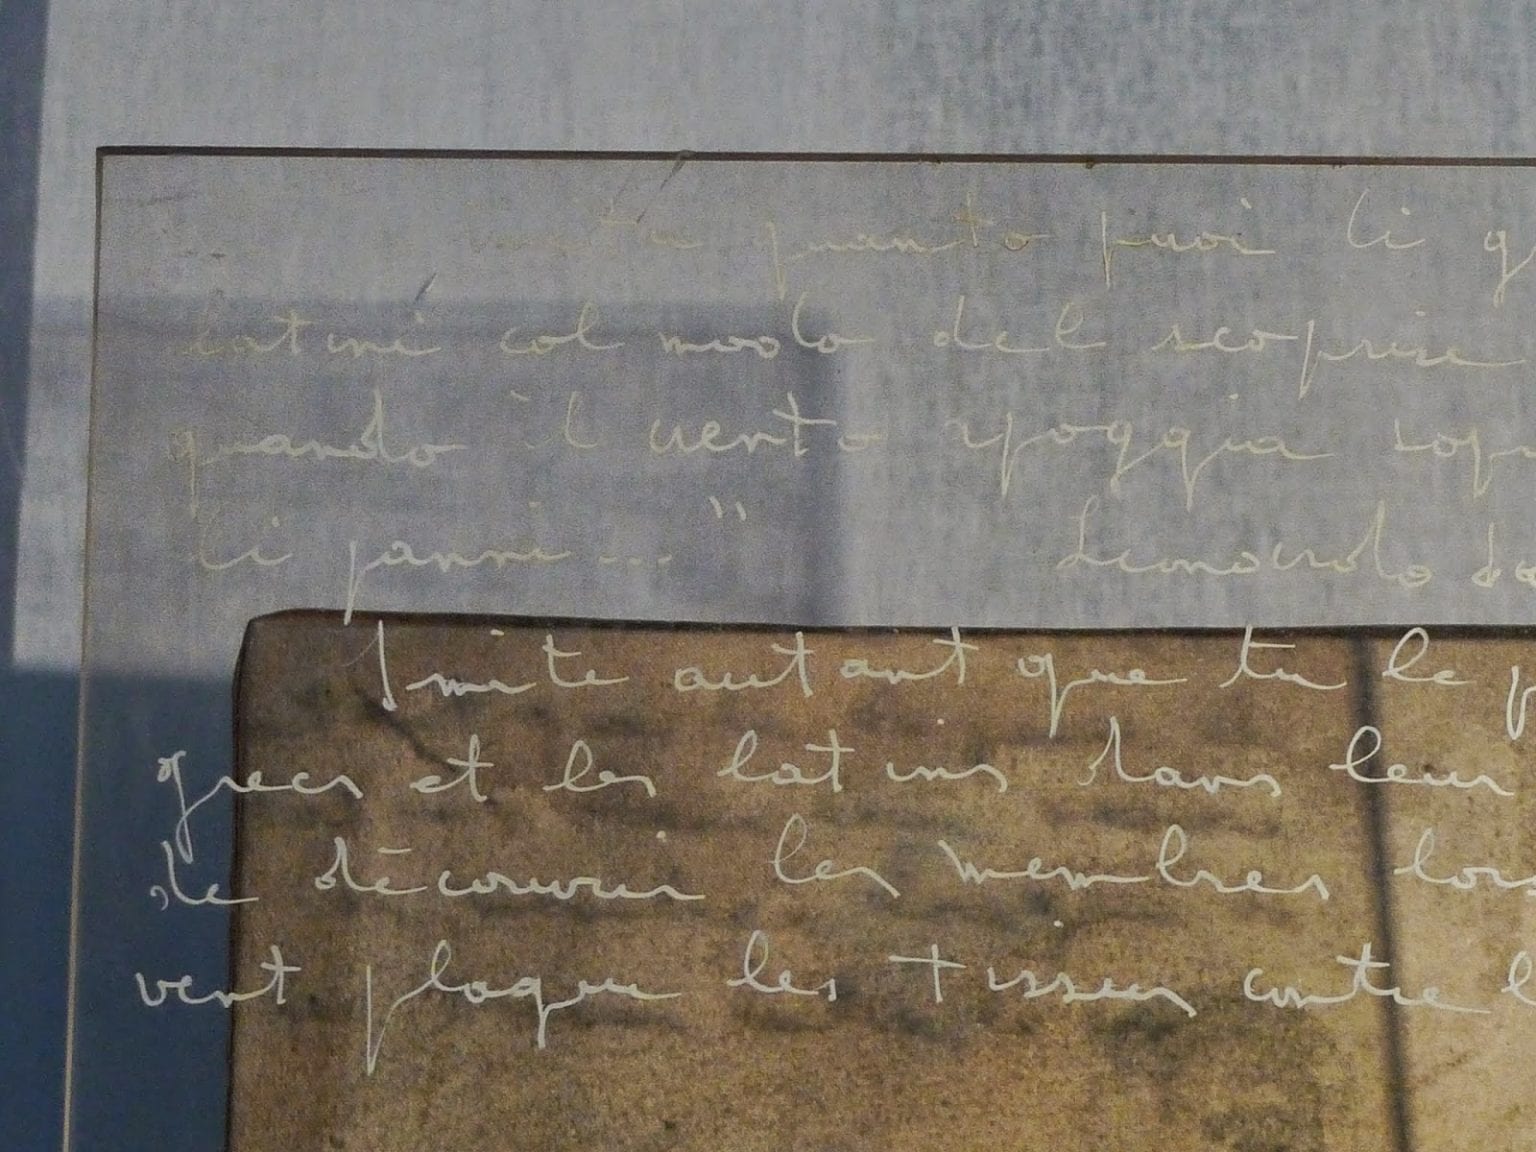 quanto puoi li g
latini col modo del scoprire
quando il vento apoggia sopr
li panni ... " Leonardo da
Imite autant que tu le p
grecs et les latins dans leur
de découvrir les membres lors
vent plaque les tissus contre l